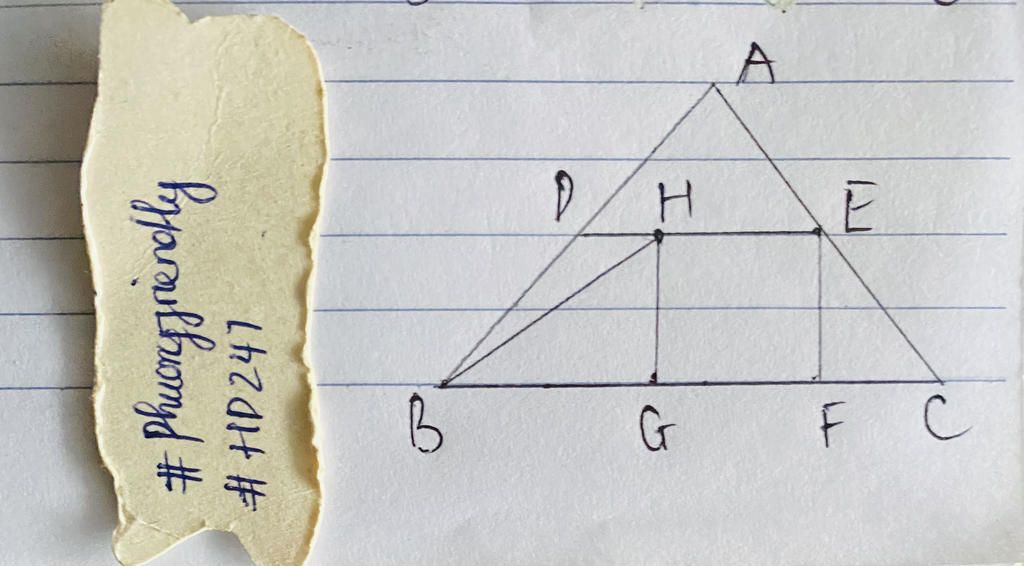 A
D H E
B G F C
# Phuongfriendly
# HD247